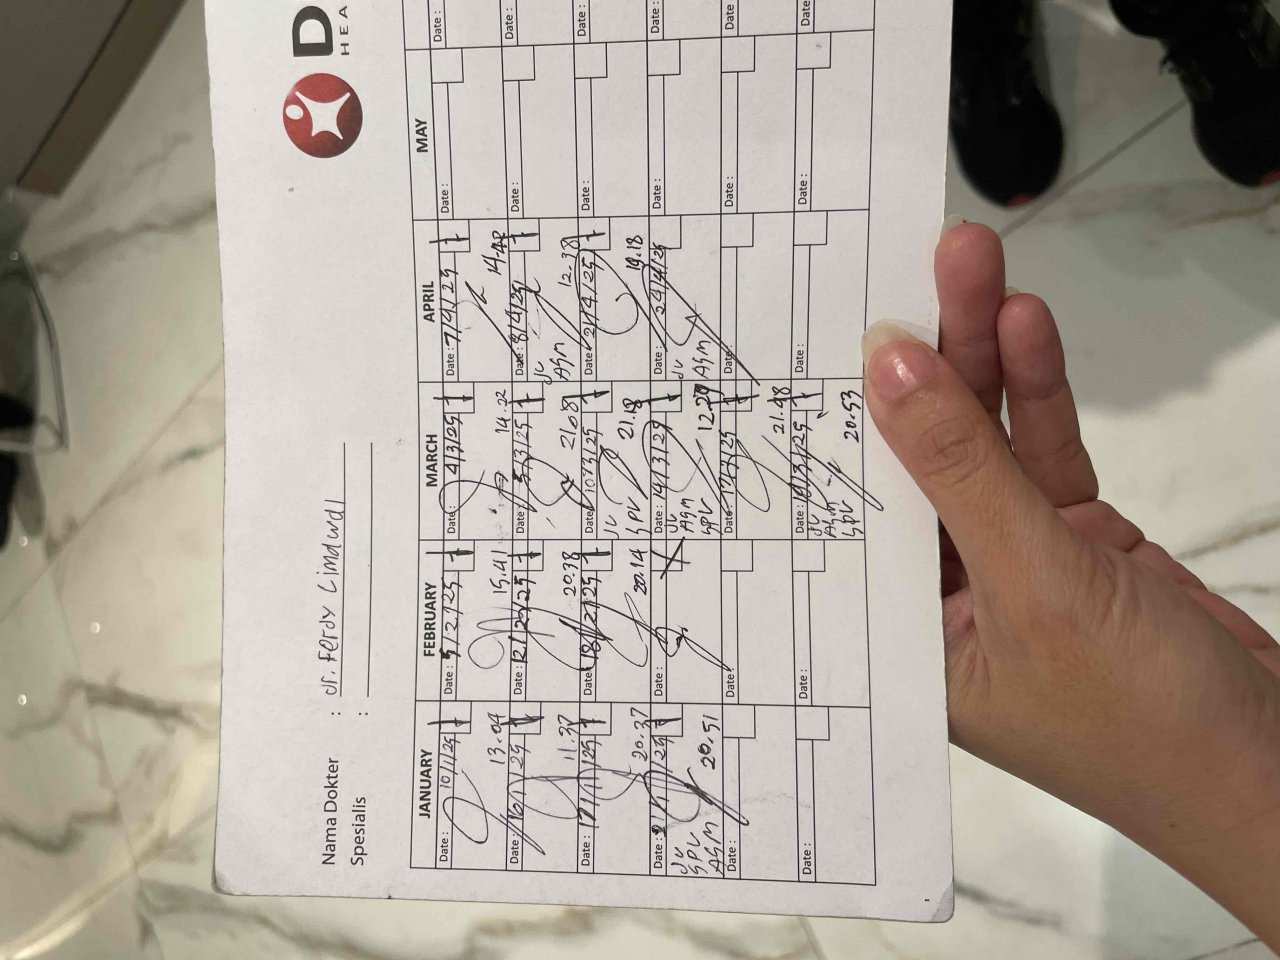 D
HEA
Nama Dokter : dr. Ferdy Limawal
Spesialis :
JANUARY FEBRUARY MARCH APRIL MAY
Date: 10/1/25 Date: 5/2/25 Date: 4/3/25 Date: 7/4/25 Date: Date:
13.04 15.41 14.22 14.42
Date: 16/1/25 Date: 12/2/25 Date: 5/3/25 Date: 8/4/25 Date: Date:
11.37 20.38 21.08 JV ASM 12.38
Date: 17/1/25 Date: 18/2/25 Date: 10/3/25 Date: 21/4/25 Date: Date:
20.37 20.14 JV SPV 21.18 19.18
Date: 21/1/25 Date: Date: 14/3/25 Date: 24/4/25 Date: Date:
JV SPV ASM 20.51 JV ASM SPV 12.29 JV ASM
Date: Date: Date: 17/3/25 Date: Date: Date:
21.48
Date: Date: Date: Date: Date: Date:
JV ASM SPV 20.53